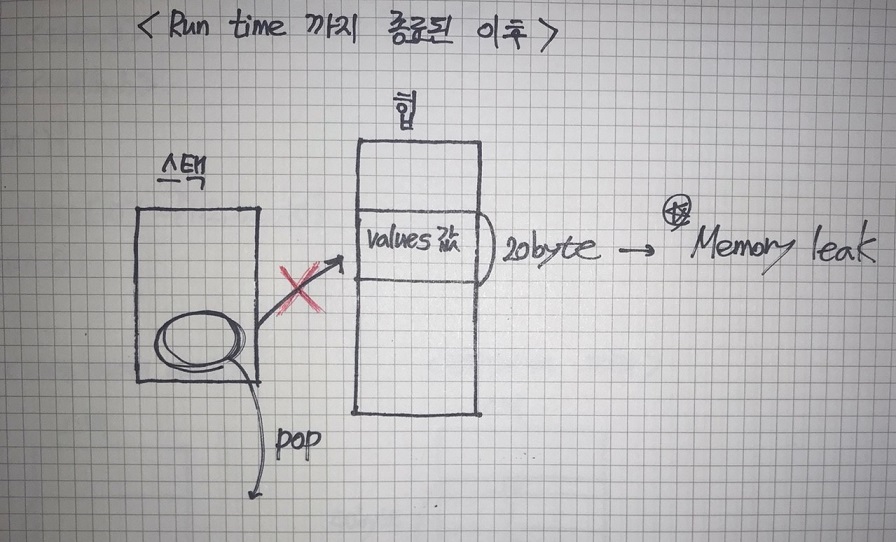 < Run time 까지 종료된 이후 >
힙
스택
values 값
20byte → Memory leak
pop